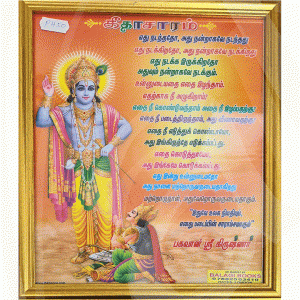 கீதாசாரம்
எது நடந்ததோ, அது நன்றாகவே நடந்தது
எது நடக்கிறதோ, அது நன்றாகவே நடக்கிறது
எது நடக்க இருக்கிறதோ
அதுவும் நன்றாகவே நடக்கும்
உன்னுடையதை எதை இழந்தாய்
எதற்காக நீ அழுகிறாய்
எதை நீ கொண்டுவந்தாய் அதை நீ இழப்பதற்கு
எதை நீ படைத்திருந்தாய், அது வீணாவதற்கு
எதை நீ எடுத்துக் கொண்டாயோ
அது இங்கிருந்தே எடுக்கப்பட்டது
எதை கொடுத்தாயோ
அது இங்கேயே கொடுக்கப்பட்டது
எது இன்று உன்னுடையதோ
அது நாளை மற்றொருவருடையதாகிறது
மற்றொருநாள், அது வேறொருவருடையதாகும்
"இதுவே உலக நியதியும்
எனது படைப்பின் சாராம்சமாகும்"
பகவான் ஸ்ரீ கிருஷ்ணர்
BALAJI BOOKS